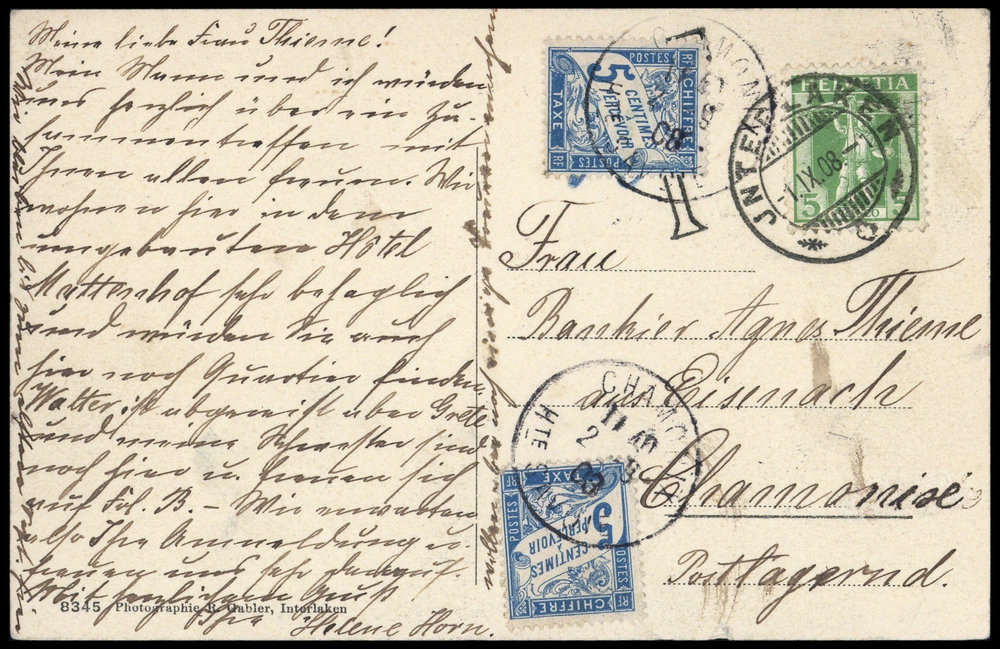 Meine liebe Frau Thieme!
Mein Mann und ich würden
uns herzlich über ein Zu-
sammentreffen mit
Ihnen allen freuen. Wir
wohnen hier in dem
umgebauten Hôtel
Mattenhof sehr behaglich
und würden Sie auch
hier noch Quartier finden.
Walter ist abgereist aber Grete
und meine Schwester sind
noch hier u. freuen sich
auf Frl. B. – Wir erwarten
also Ihre Anmeldung u.
freuen uns sehr darauf.
Mit herzlichem Gruß
Ihre Helene Horn.
8345 Photographie R. Gabler, Interlaken
Frau
Bankier Agnes Thieme
aus Eisenach
Chamonix
Postlagernd.
HELVETIA
5
INTERLAKEN
1.IX.08
T
POSTES
RF CHIFFRE
5
CENTIMES
À PERCEVOIR
TAXE RF
POSTES RF
CHAMONIX
08
CHAMONIX
11 40
2
08
HTE SAVOIE
RF TAXE
POSTES
5
CENTIMES
À PERCEVOIR
CHIFFRE RF
POSTES RF